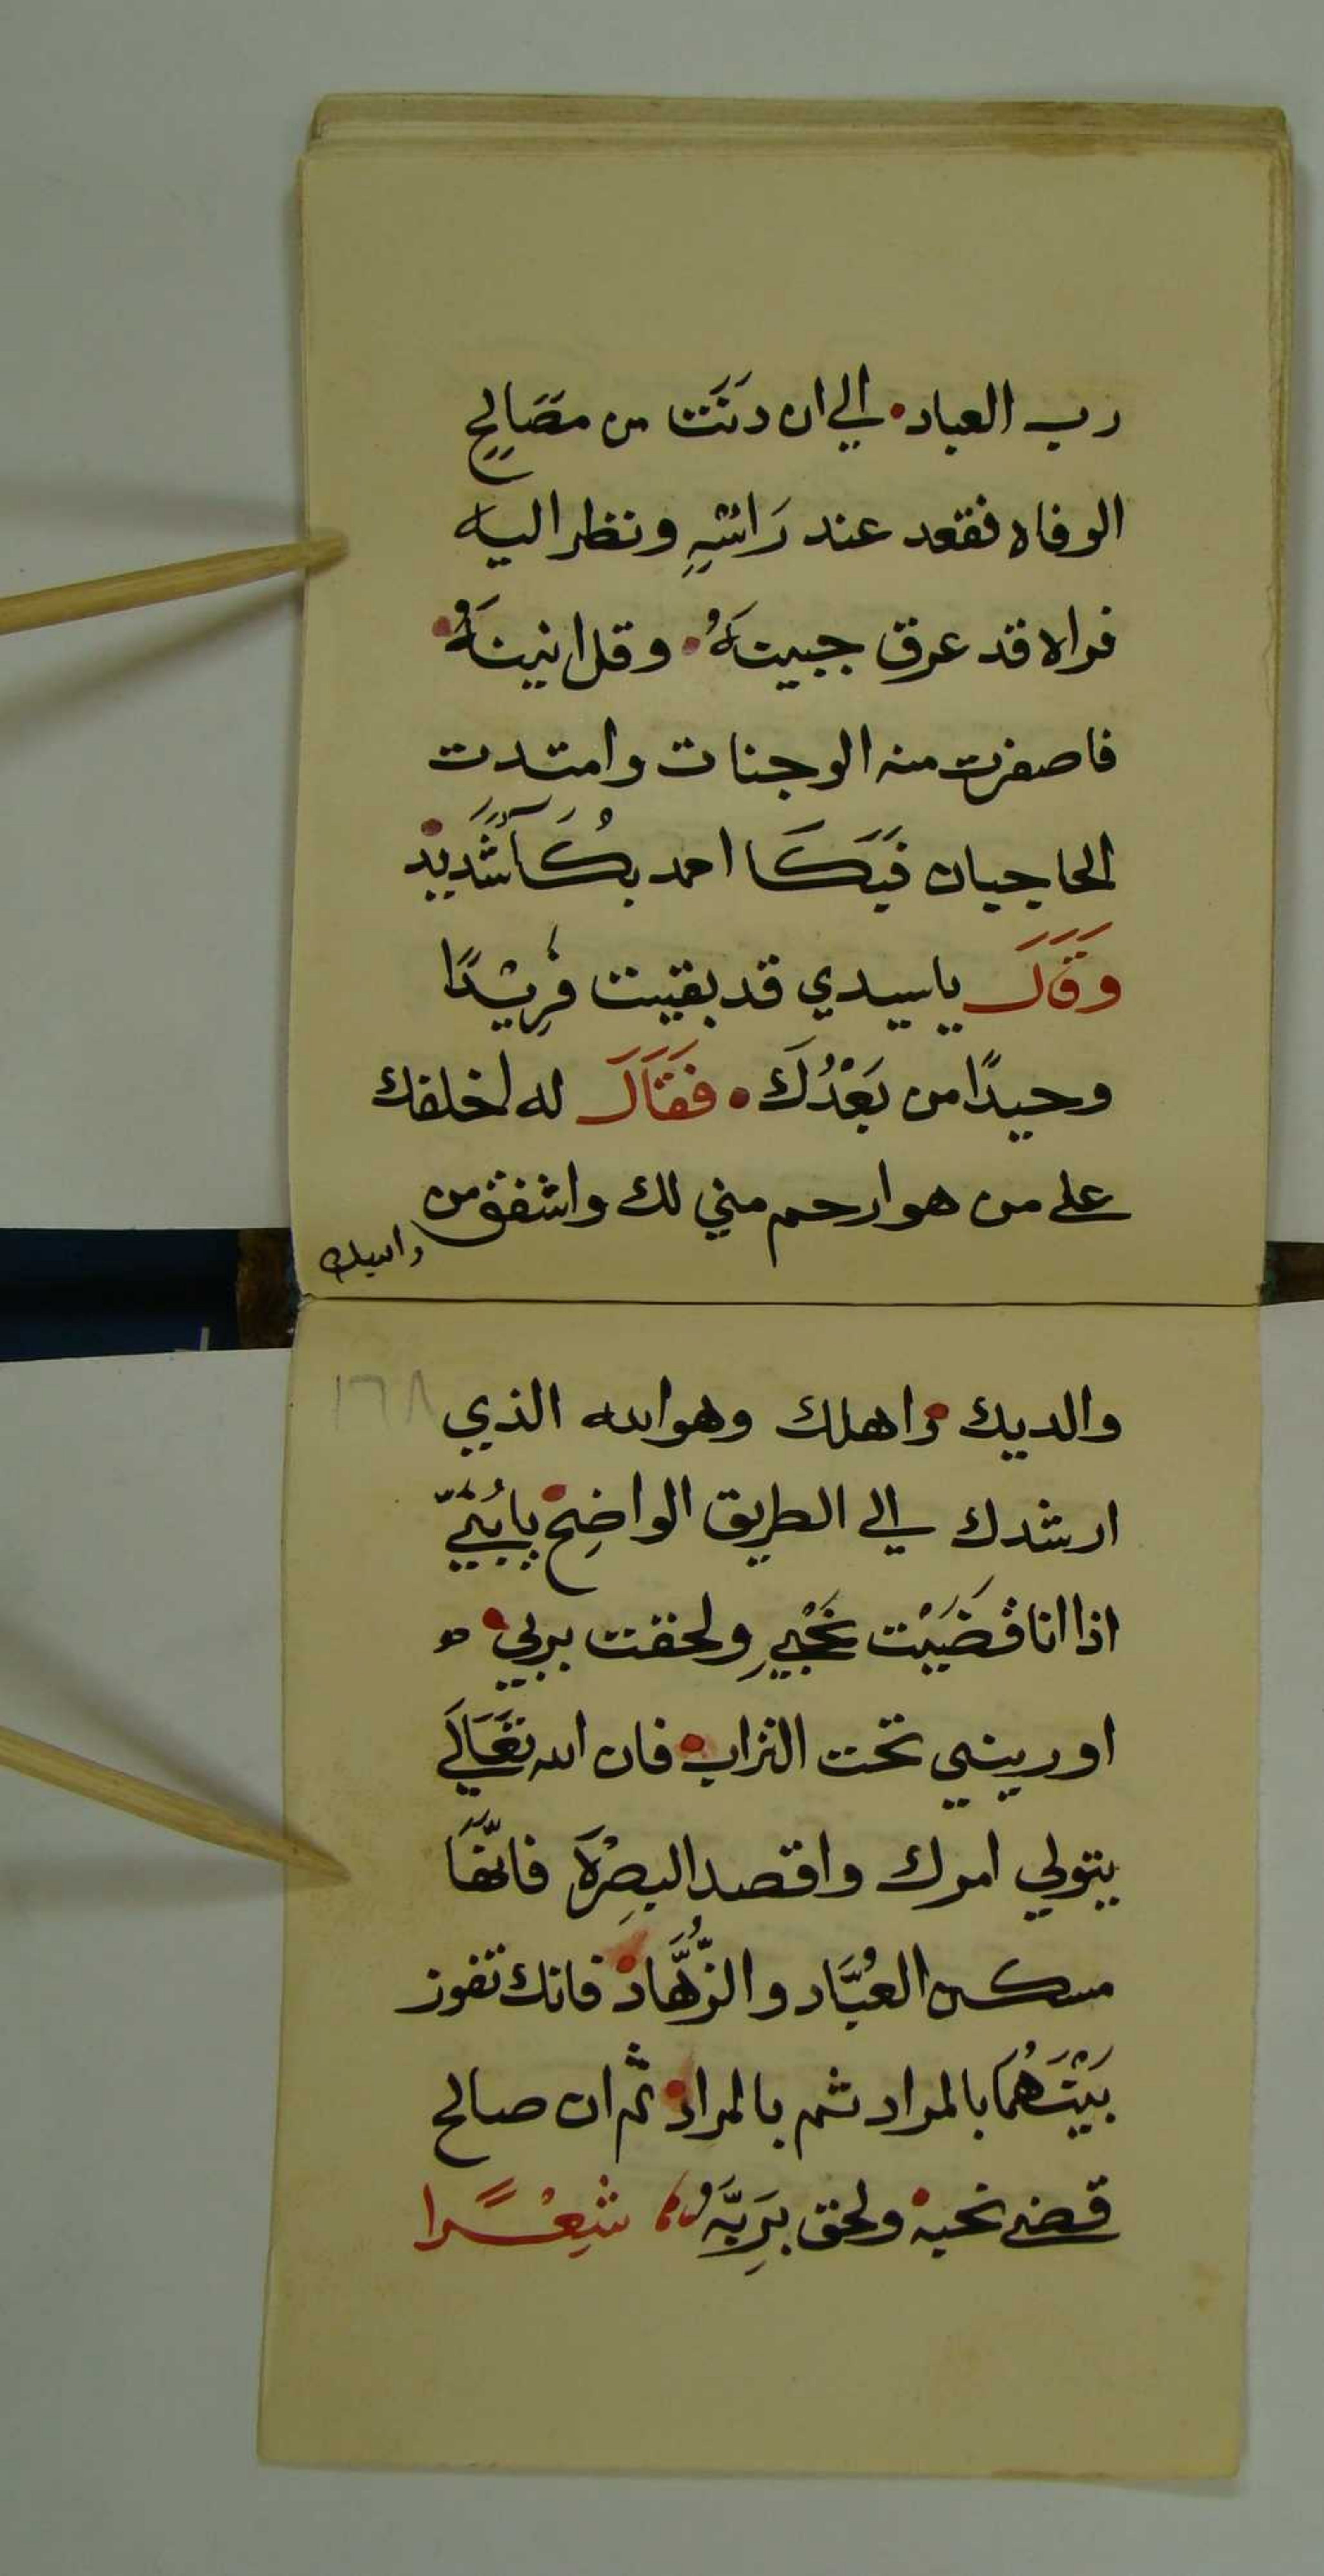 رب العباد• الي ان دَنَت من مصَالحٍ
الوفاه فقعد عند رَاسِهِ ونظر اليه
فراه قد عرق جبينهُ• وقل انينهُ•
فاصفرت منه الوجنات وامتدت
الحاجبان فَبَكَا احمد بكُآً شَديد•
وَقَالَ ياسيدي قد بقيت فريْدًا
وحيدًا من بَعْدُكَ• فَقَالَ له اخلفك
علي من هو ارحم مني لك واشفق من
والديك
١٦٨
والديك• واهلك وهو الله الذي
ارشدك الي الطريق الواضِح• يابُنَيّ
اذا انا قضَيْت نَحْبِي ولحقت بربي•
اوريني تحت التراب• فان الله تعَالَي
يتولي امرك واقصد البصِرْة فانّهَا
مسكن العُبَّاد والزُّهَّاد• فانك تفوز
بَيْنَهُمَا بالمراد ثم بالمراد• ثم ان صالح
قضي نحبه• ولحق بِرَبِّهُ، شِعْرًا